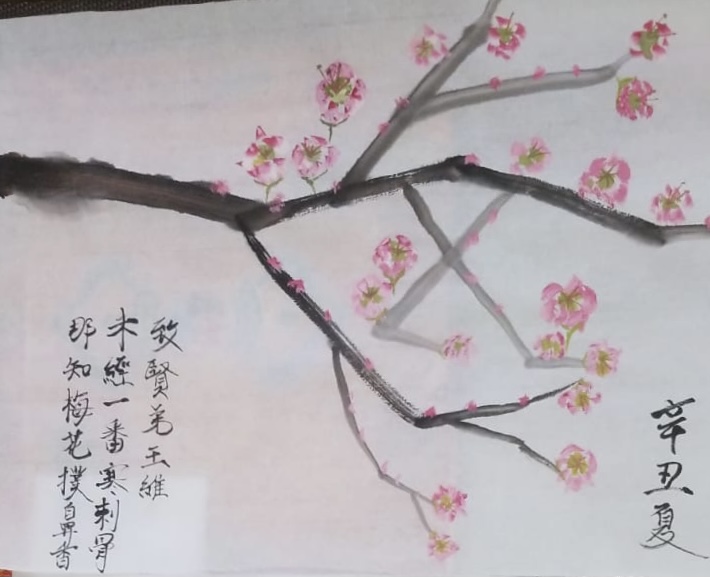 辛丑夏
致賢弟王維
未經一番寒刺骨
那知梅花撲鼻香